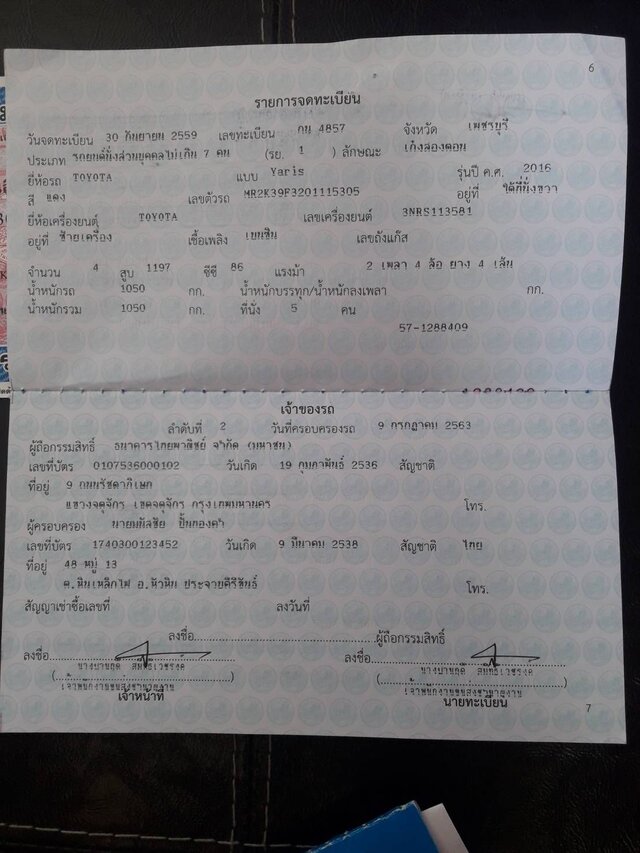 6
รายการจดทะเบียน
วันจดทะเบียน 30 กันยายน 2559 เลขทะเบียน กน 4857 จังหวัด เพชรบุรี
ประเภท รถยนต์นั่งส่วนบุคคลไม่เกิน 7 คน (รย. 1 ) ลักษณะ เก๋งสองตอน
ยี่ห้อรถ TOYOTA แบบ Yaris รุ่นปี ค.ศ. 2016
สี แดง เลขตัวรถ MR2K39F3201115305 อยู่ที่ ใต้ที่นั่งขวา
ยี่ห้อเครื่องยนต์ TOYOTA เลขเครื่องยนต์ 3NRS113581
อยู่ที่ ซ้ายเครื่อง เชื้อเพลิง เบนซิน เลขถังแก๊ส
จำนวน 4 สูบ 1197 ซีซี 86 แรงม้า 2 เพลา 4 ล้อ ยาง 4 เส้น
น้ำหนักรถ 1050 กก. น้ำหนักบรรทุก/น้ำหนักลงเพลา กก.
น้ำหนักรวม 1050 กก. ที่นั่ง 5 คน
57-1288409
เจ้าของรถ
ลำดับที่ 2 วันที่ครอบครองรถ 9 กรกฎาคม 2563
ผู้ถือกรรมสิทธิ์ ธนาคารไทยพาณิชย์ จำกัด (มหาชน)
เลขที่บัตร 0107536000102 วันเกิด 19 กุมภาพันธ์ 2536 สัญชาติ
ที่อยู่ 9 ถนนรัชดาภิเษก
แขวงจตุจักร เขตจตุจักร กรุงเทพมหานคร โทร.
ผู้ครอบครอง ปิ่นทองคำ
เลขที่บัตร 1740300123452 วันเกิด 9 มีนาคม 2538 สัญชาติ ไทย
ที่อยู่ 48 หมู่ 13
ต.หินเหล็กไฟ อ.หัวหิน ประจวบคีรีขันธ์ โทร.
สัญญาเช่าซื้อเลขที่ ลงวันที่
ลงชื่อ ผู้ถือกรรมสิทธิ์
ลงชื่อ ลงชื่อ
เจ้าพนักงานขนส่งชำนาญงาน เจ้าพนักงานขนส่งชำนาญงาน
เจ้าหน้าที่ นายทะเบียน
7